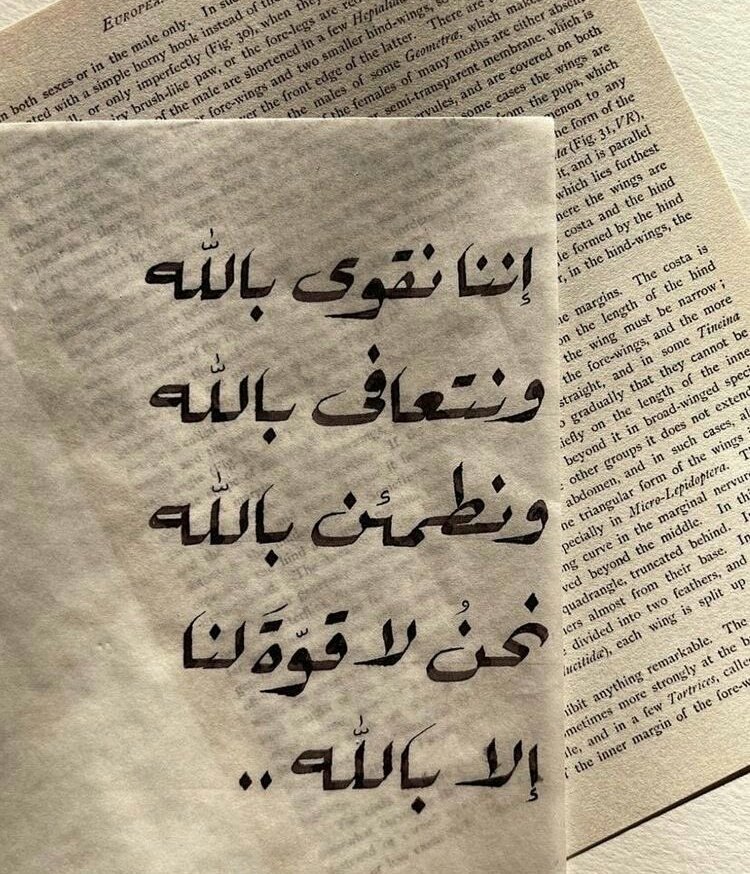 EUROPEA
both sexes or in the male only. In
with a simple horny hook instead of the
or only imperfectly (Fig. 30), when they
brush-like paw, or the fore-legs are
of the male are shortened in a few Hepialidæ
fore-wings and two smaller hind-wings,
the front edge of the latter. There are
the males of some Geometræ, which
the females of many moths are either
semi-transparent membrane, which is
and are covered on both
some cases the wings are
from the pupa, which
to any
form of the
(Fig. 31, VR).
it, and is parallel
which lies furthest
the wings are
costa and the hind
formed by the hind
in the hind-wings, the
margins. The costa is
on the length of the hind
the wing must be narrow;
the fore-wings, and the more
straight, and in some Tineina
gradually that they cannot be
on the length of the
beyond it in broad-winged
other groups it does not
abdomen, and in such cases,
triangular form of the wings
in Micro-Lepidoptera.
curve in the marginal
beyond the middle. In
quadrangle, truncated behind.
almost from their base. In
divided into two feathers, and
each wing is split up
anything remarkable. The
more strongly at the
and in a few Tortrices,
the inner margin of the
إننا نقوى بالله
ونتعافى بالله
ونطمئن بالله
نحنُ لا قوّةَ لنا
إلا بالله ..